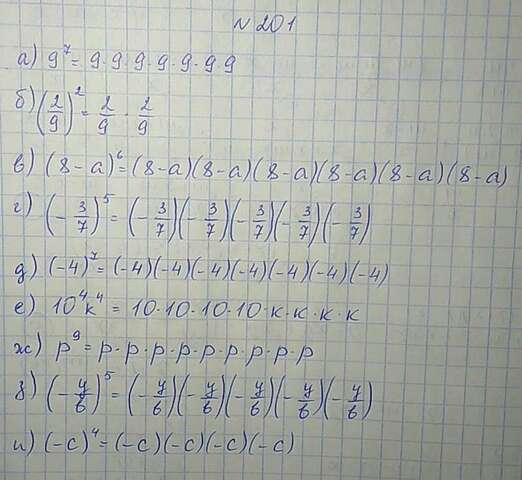 № 201
а) 9⁷ = 9·9·9·9·9·9·9
б) (2/9)² = 2/9 · 2/9
в) (8-a)⁶ = (8-a)(8-a)(8-a)(8-a)(8-a)(8-a)
г) (-3/7)⁵ = (-3/7)(-3/7)(-3/7)(-3/7)(-3/7)
д) (-4)⁷ = (-4)(-4)(-4)(-4)(-4)(-4)(-4)
е) 10⁴к⁴ = 10·10·10·10·к·к·к·к
ж) p⁹ = p·p·p·p·p·p·p·p·p
з) (-y/6)⁵ = (-y/6)(-y/6)(-y/6)(-y/6)(-y/6)
и) (-c)⁴ = (-c)(-c)(-c)(-c)